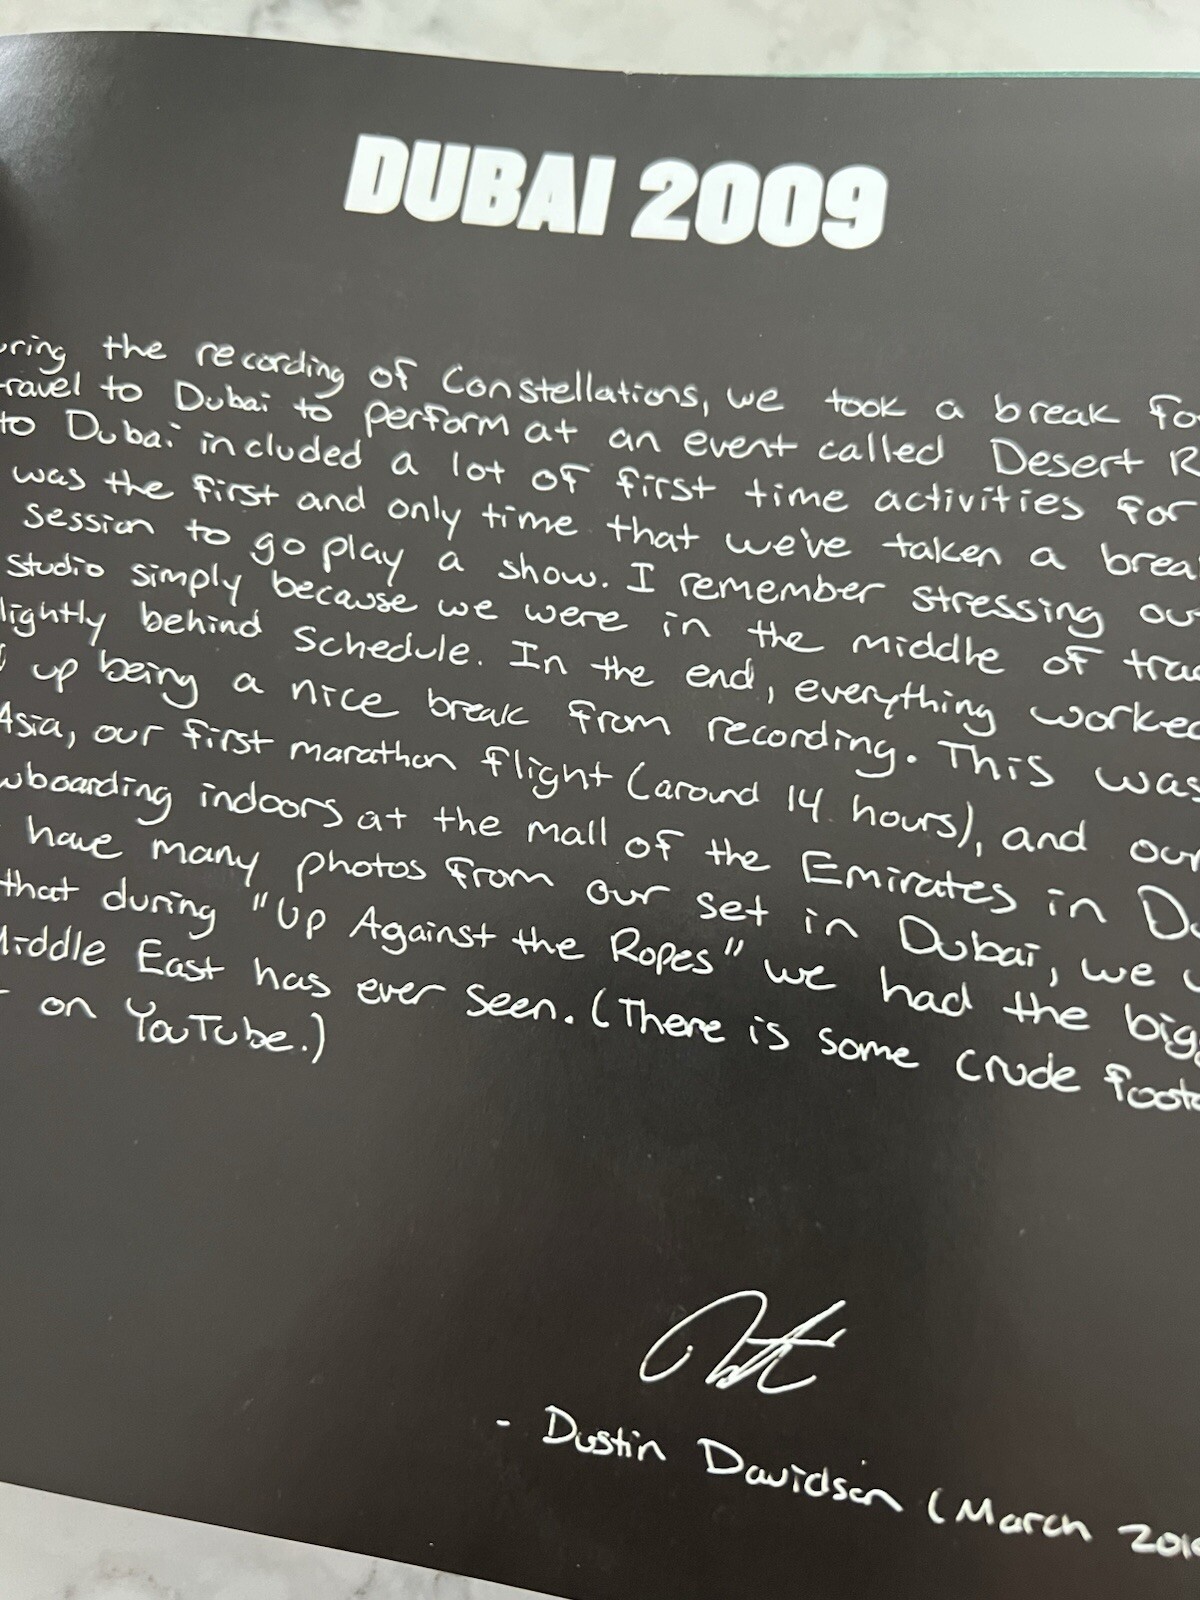 DUBAI 2009
the recording of Constellations, we took a break
to Dubai to perform at an event called Desert
to Dubai included a lot of first time activities for
was the first and only time that we've taken a
session to go play a show. I remember stressing
studio simply because we were in the middle of
behind schedule. In the end, everything worked
up being a nice break from recording. This was
Asia, our first marathon flight (around 14 hours), and our
indoors at the mall of the Emirates in
have many photos from our set in Dubai, we
that during "Up Against the Ropes" we had the
Middle East has ever seen. (There is some crude
on YouTube.)
- Dustin Davidson (March